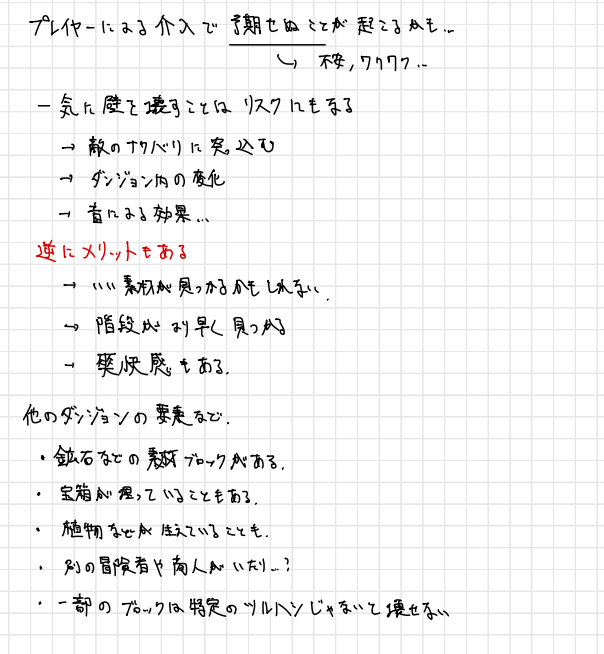 プレイヤーによる介入で予期せぬことが起こるかも…
↳ 不安,ワクワク…
一気に壁を壊すことはリスクにもなる
→ 敵のナワバリに突っ込む
→ ダンジョン内の変化
→ 音による効果…
逆にメリットもある
→ いい素材が見つかるかもしれない.
→ 階段がより早く見つかる
→ 爽快感もある.
他のダンジョンの要素など.
・鉱石などの素材ブロックがある.
・宝箱が埋っていることもある.
・植物などが生えていることも.
・別の冒険者や商人がいたり…?
・一部のブロックは特定のツルハシじゃないと壊せない